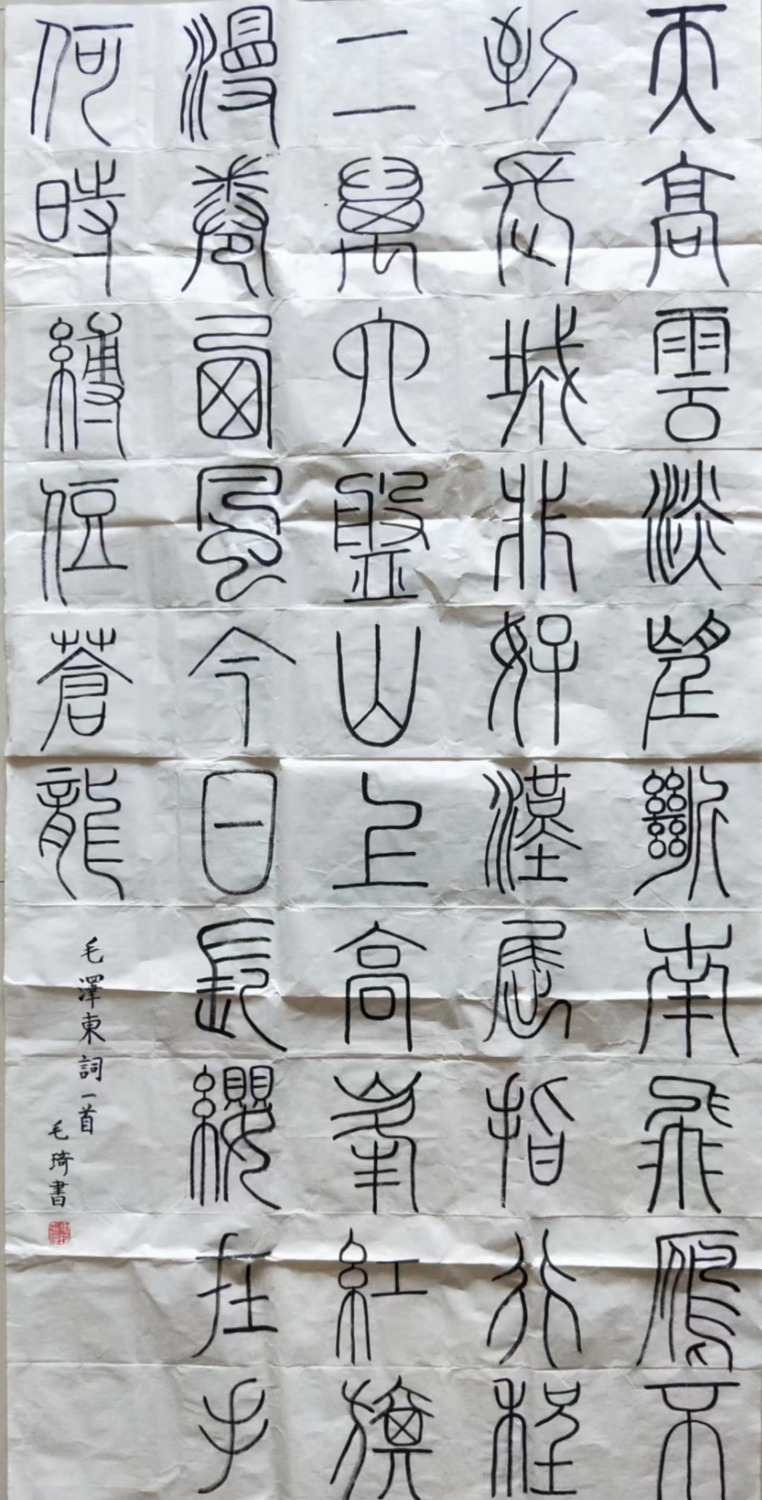 天高雲淡望斷南飛鴈不
到長城非好漢屈指行程
二萬六盤山上高峯紅旗
漫卷西風今日長纓在手
何時縛住蒼龍
毛澤東詞一首
毛琦書